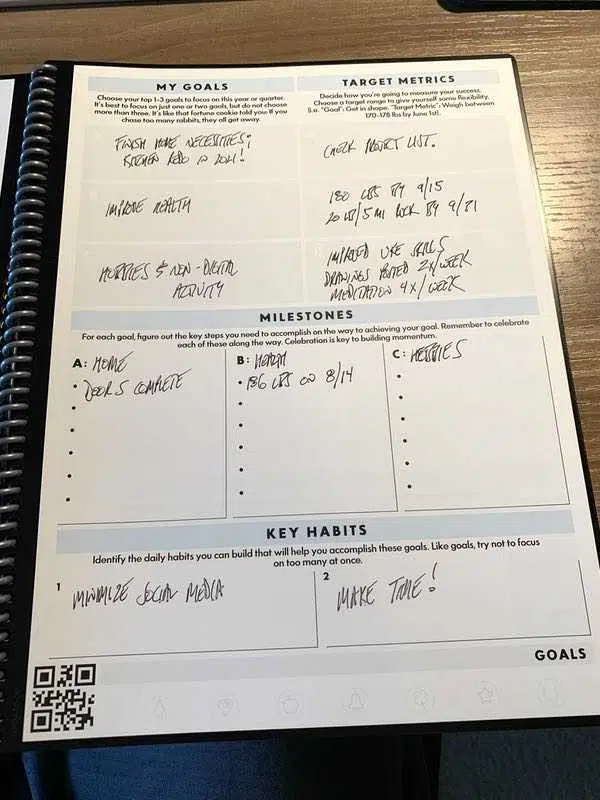 MY GOALS
Choose your top 1-3 goals to focus on this year or quarter.
It's best to focus on just one or two goals, but do not choose
more than three. It's like that fortune cookie told you: if you
chase too many rabbits, they all get away.
TARGET METRICS
Decide how you're going to measure your success.
Choose a target range to give yourself some flexibility.
(i.e. "Goal": Get in shape. "Target Metric": Weigh between
170-178 lbs by June 1st).
FINISH HOME NECESSITIES;
KITCHEN REDO IN 2021!
CHECK PROJECT LIST.
IMPROVE HEALTH
180 LBS BY 9/15
20 LB/5 MI RUCK BY 9/21
HOBBIES & NON-DIGITAL
ACTIVITY
IMPROVED UKE SKILLS
DRAWINGS POSTED 2x/WEEK
MEDITATION 4x/WEEK
MILESTONES
For each goal, figure out the key steps you need to accomplish on the way to achieving your goal. Remember to celebrate
each of these along the way. Celebration is key to building momentum.
A: HOME
• DOORS COMPLETE
B: HEALTH
• 186 LBS ON 8/14
C: HOBBIES
KEY HABITS
Identify the daily habits you can build that will help you accomplish these goals. Like goals, try not to focus
on too many at once.
1 MINIMIZE SOCIAL MEDIA
2 MAKE TIME!
GOALS